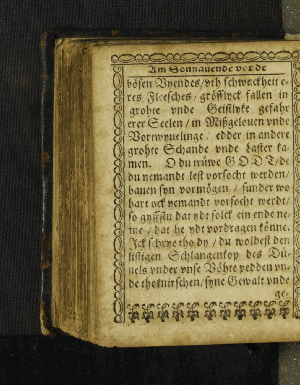 Am Sonnauende vor de
bösen Vyendes / vth schwackheit e-
res Fleesches / gröfflyck fallen in
grohte vnde Geistlyke gefahr
erer Seelen / in Mißgelouen vnde
Vorrwyuelinge / edder in andere
grohte Schande vnde Laster ka-
men. O du trüwe GODT / de
du nemandt lest vorsocht werden /
bauen syn vormögen / sunder wo
hart ock yemandt vorsocht werdt /
so gyffstu dat ydt solck ein ende ne-
me / dat he ydt vordragen könne.
Ick schrye tho dy / du woldest den
listigen Schlangenkop des Dü-
uels vnder vnse Vöhte pedden vn-
de thoknirschen / syne Gewalt vnde
ge-